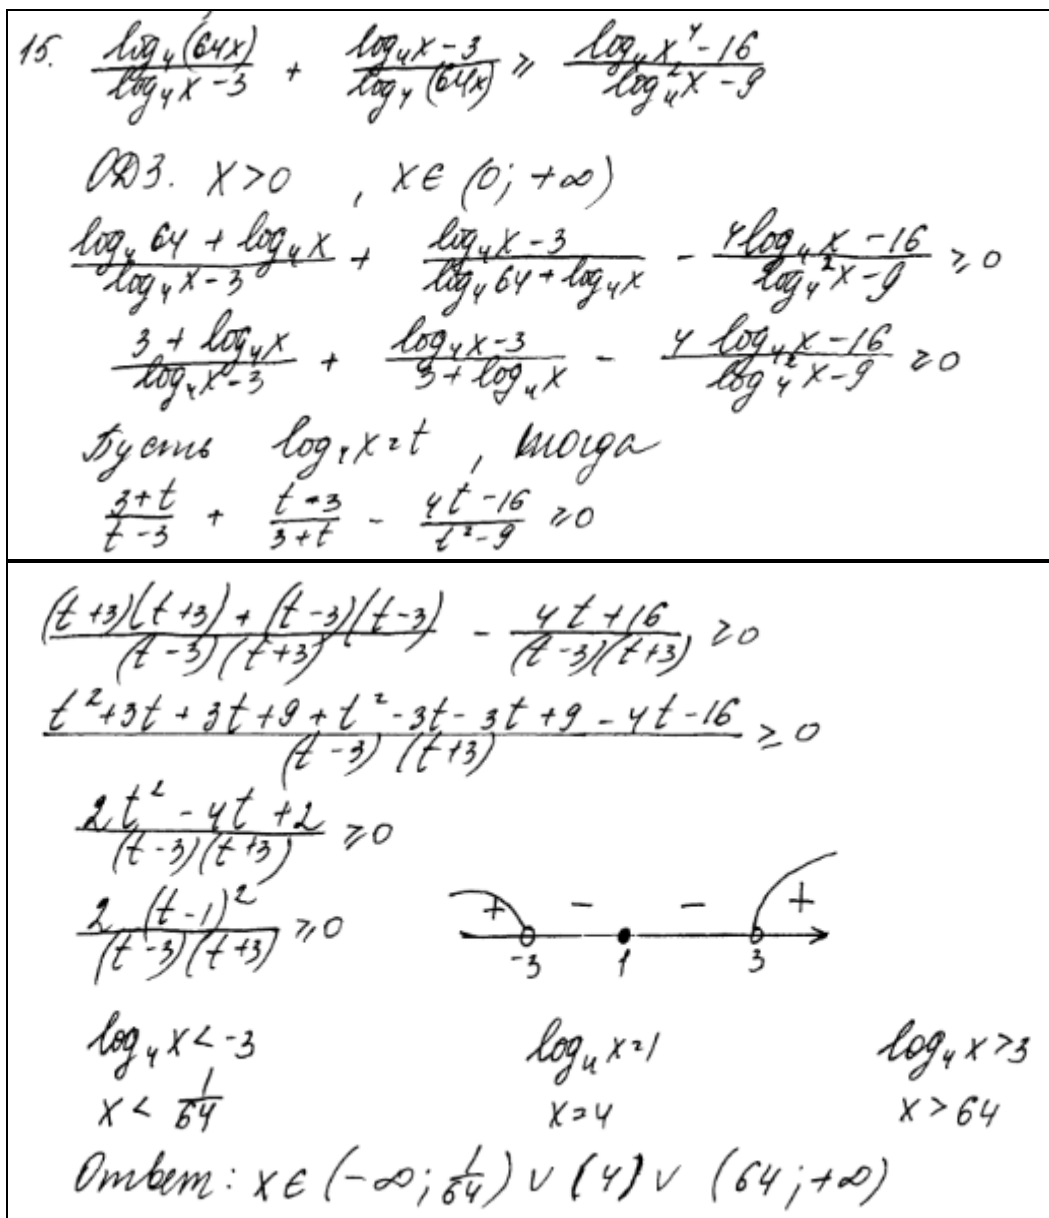 15. \frac{\log_4(64x)}{\log_4 x - 3} + \frac{\log_4 x - 3}{\log_4(64x)} \geq \frac{\log_4 x^4 - 16}{\log_4^2 x - 9}
ОДЗ. x > 0 , x ∈ (0; +∞)
\frac{\log_4 64 + \log_4 x}{\log_4 x - 3} + \frac{\log_4 x - 3}{\log_4 64 + \log_4 x} - \frac{4\log_4 x - 16}{\log_4^2 x - 9} \geq 0
\frac{3 + \log_4 x}{\log_4 x - 3} + \frac{\log_4 x - 3}{3 + \log_4 x} - \frac{4\log_4 x - 16}{\log_4^2 x - 9} \geq 0
Пусть \log_4 x = t , тогда
\frac{3+t}{t-3} + \frac{t-3}{3+t} - \frac{4t-16}{t^2-9} \geq 0
\frac{(t+3)(t+3) + (t-3)(t-3)}{(t-3)(t+3)} - \frac{4t+16}{(t-3)(t+3)} \geq 0
\frac{t^2+3t+3t+9+t^2-3t-3t+9-4t-16}{(t-3)(t+3)} \geq 0
\frac{2t^2-4t+2}{(t-3)(t+3)} \geq 0
\frac{2(t-1)^2}{(t-3)(t+3)} \geq 0
+ - - +
-3 1 3
\log_4 x < -3 \log_4 x = 1 \log_4 x > 3
x < \frac{1}{64} x = 4 x > 64
Ответ: x ∈ (-∞; \frac{1}{64}) ∪ {4} ∪ (64; +∞)